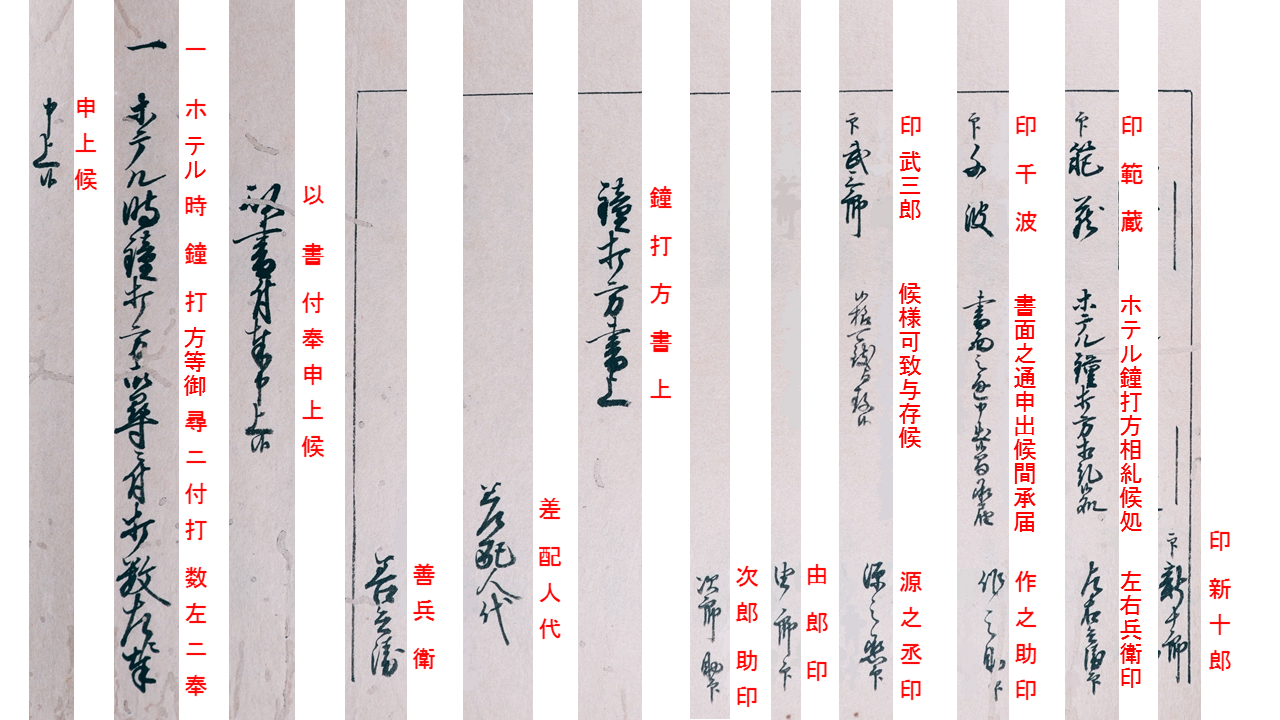 印新十郎
印範蔵
ホテル鐘打方相糺候処
左右兵衛印
印千波
書面之通申出候間承届
作之助印
印武三郎
候様可致与存候
源之丞印
由郎印
次郎助印
鐘打方書上
差配人代
善兵衛
以書付奉申上候
一ホテル時鐘打方等御尋ニ付打数左ニ奉
申上候